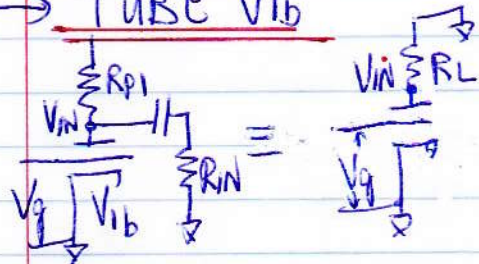 → TUBE V1b
Rp1
VIN
RIN
Vg
V1b
≡
VIN
RL
Vg